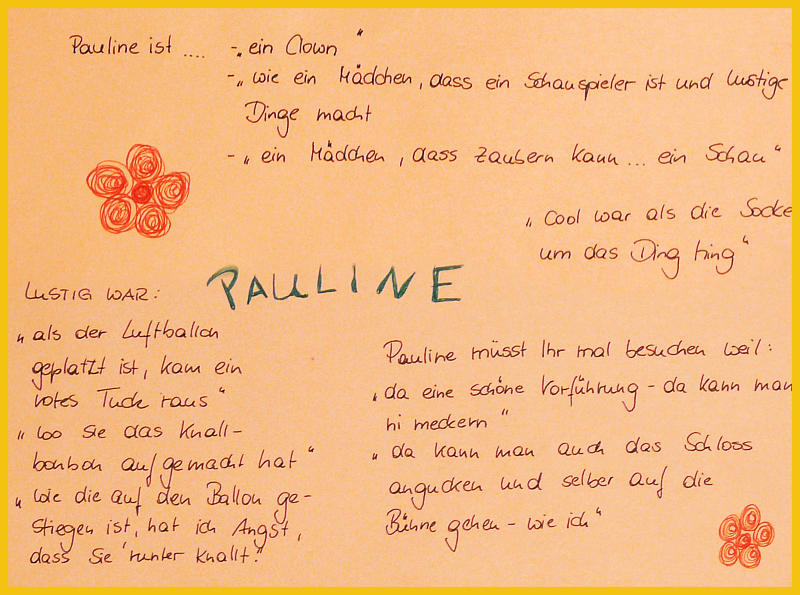 Pauline ist .... -„ ein Clown "
-„ wie ein Mädchen, dass ein Schauspieler ist und lustige
Dinge macht
-„ ein Mädchen, dass zaubern kann... ein Schau"
„ Cool war als die Socke
um das Ding hing"
PAULINE
LUSTIG WAR:
„ als der Luftballon
geplatzt ist, kam ein
rotes Tuch raus"
„ wo sie das Knall-
bonbon aufgemacht hat"
„ wie die auf den Ballon ge-
stiegen ist, hat ich Angst,
dass sie 'runter knallt."
Pauline müsst Ihr mal besuchen weil:
„ da eine schöne Vorführung - da kann man
ni meckern"
„ da kann man auch das Schloss
angucken und selber auf die
Bühne gehen - wie ich"